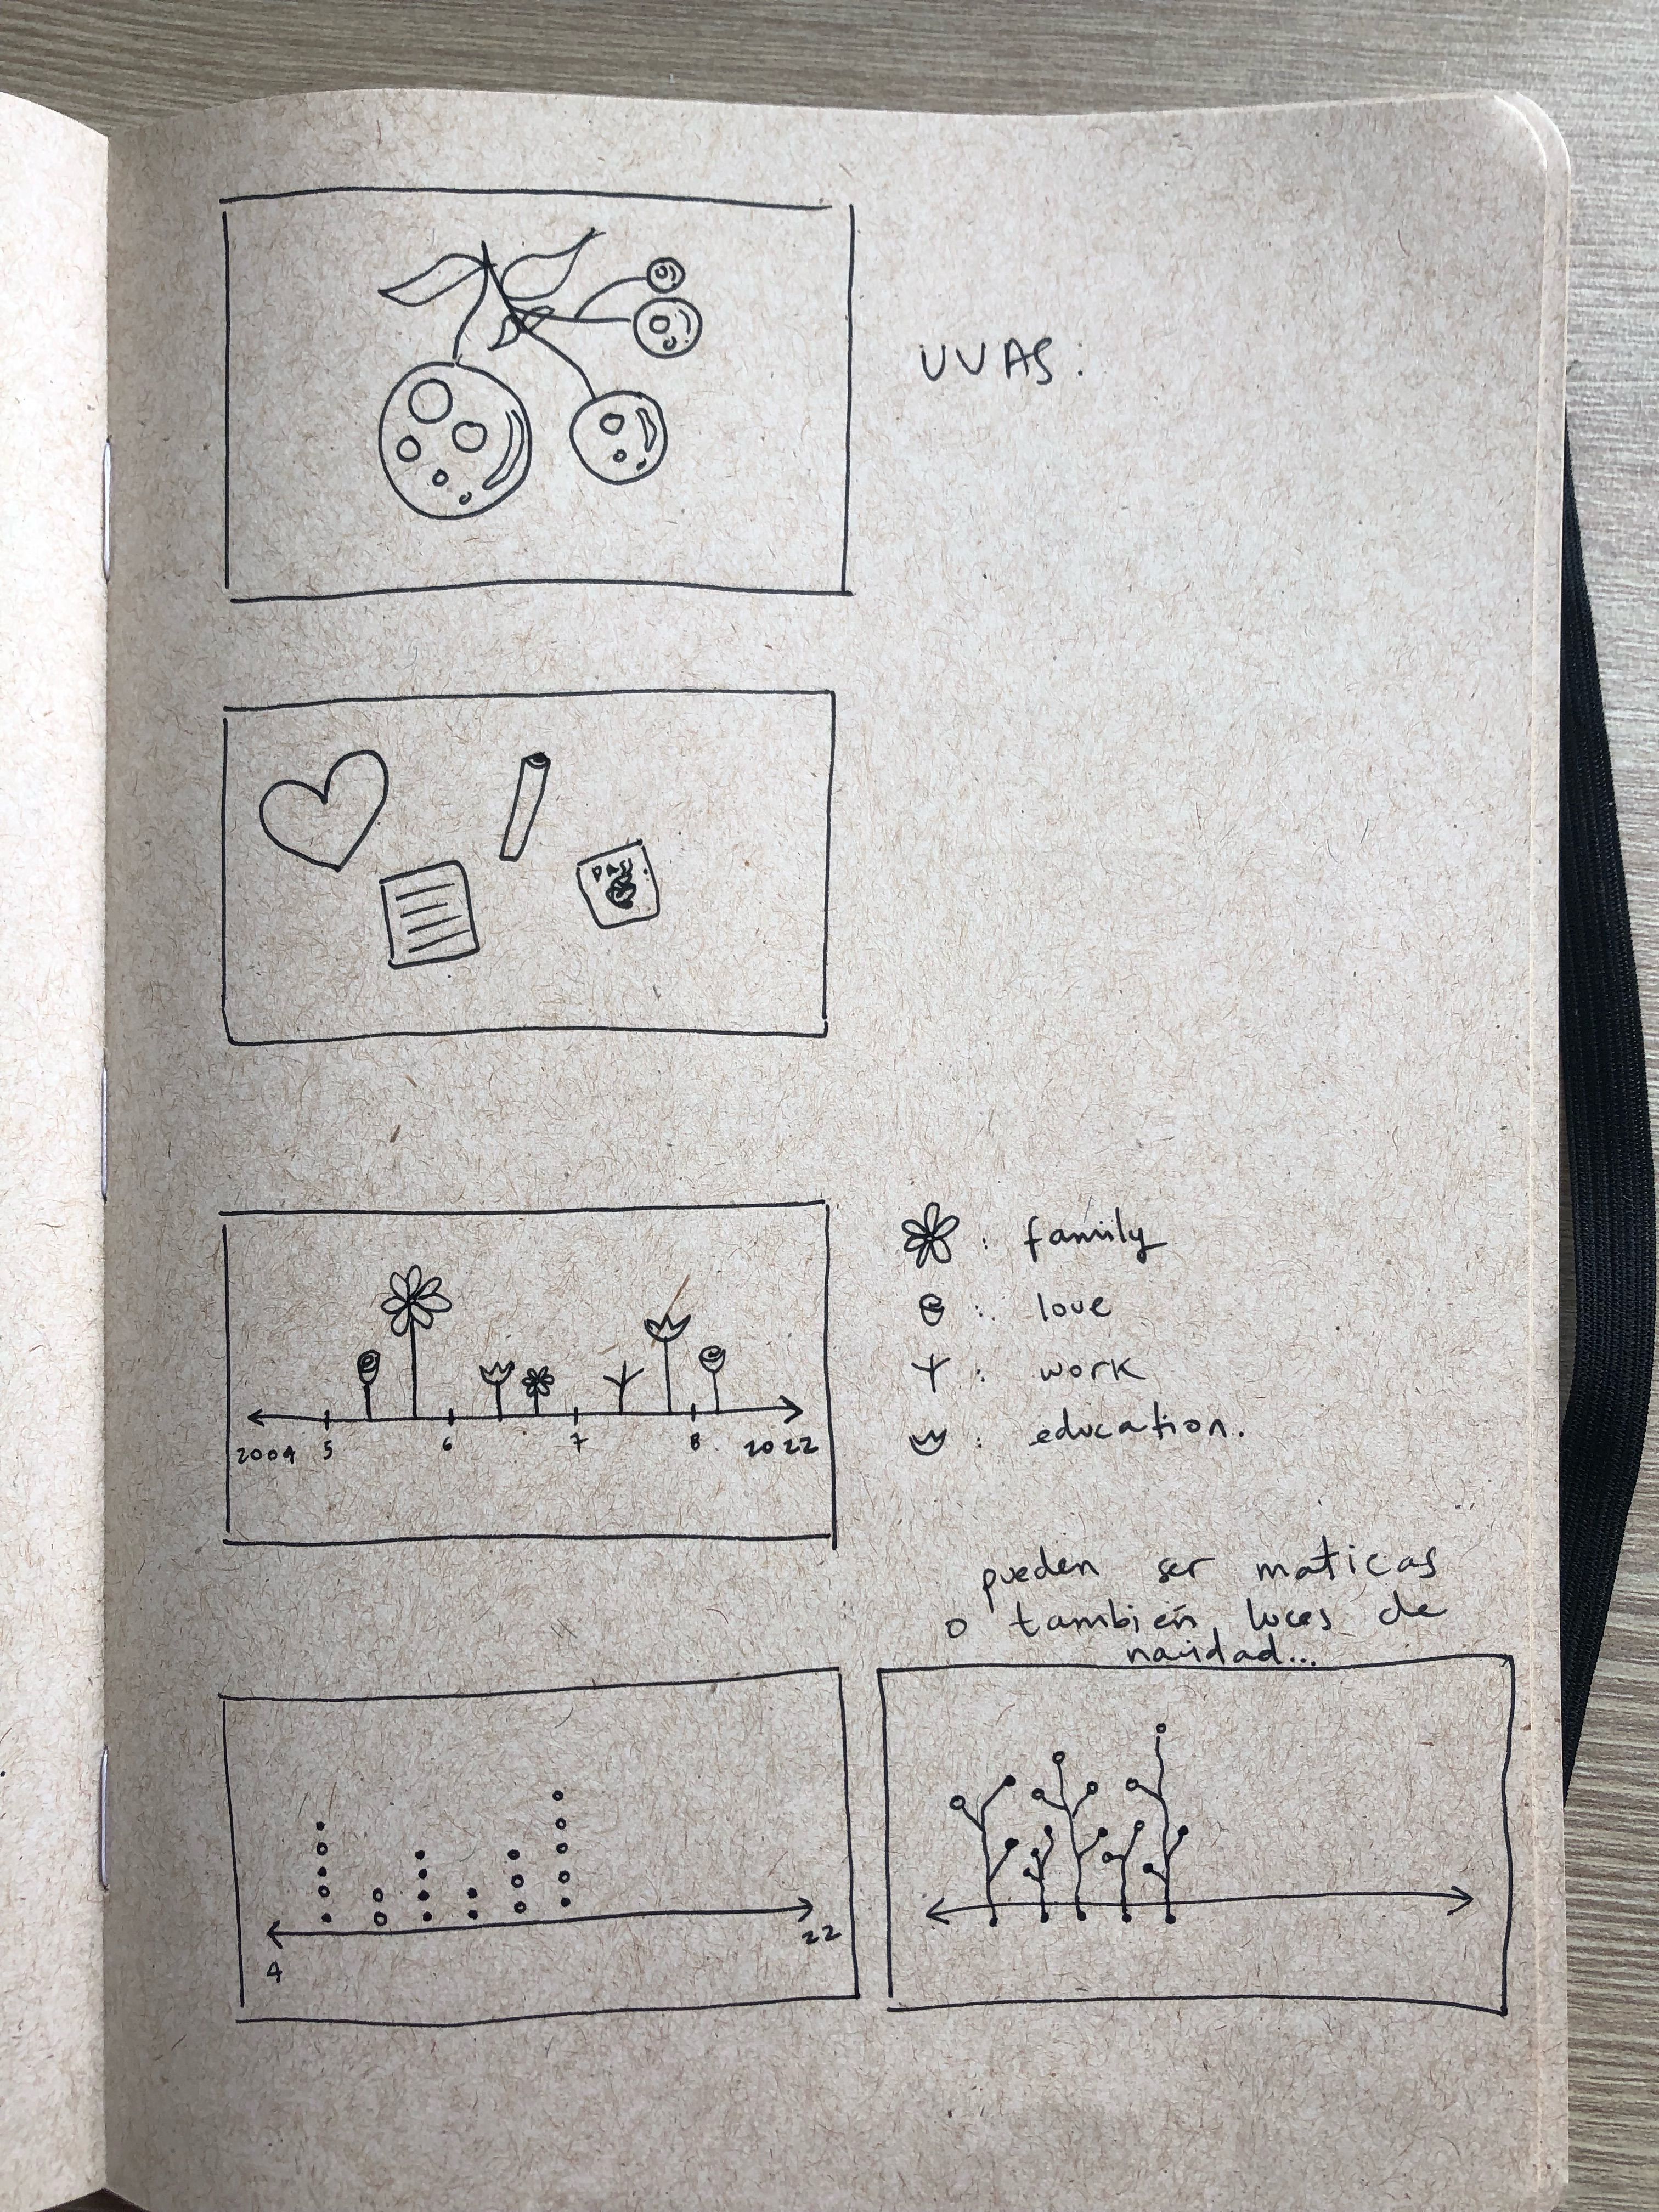 UVAS:
: family
: love
: work
: education.
2004 5 6 7 8 2022
pueden ser maticas
o también luces de
navidad...
22
4